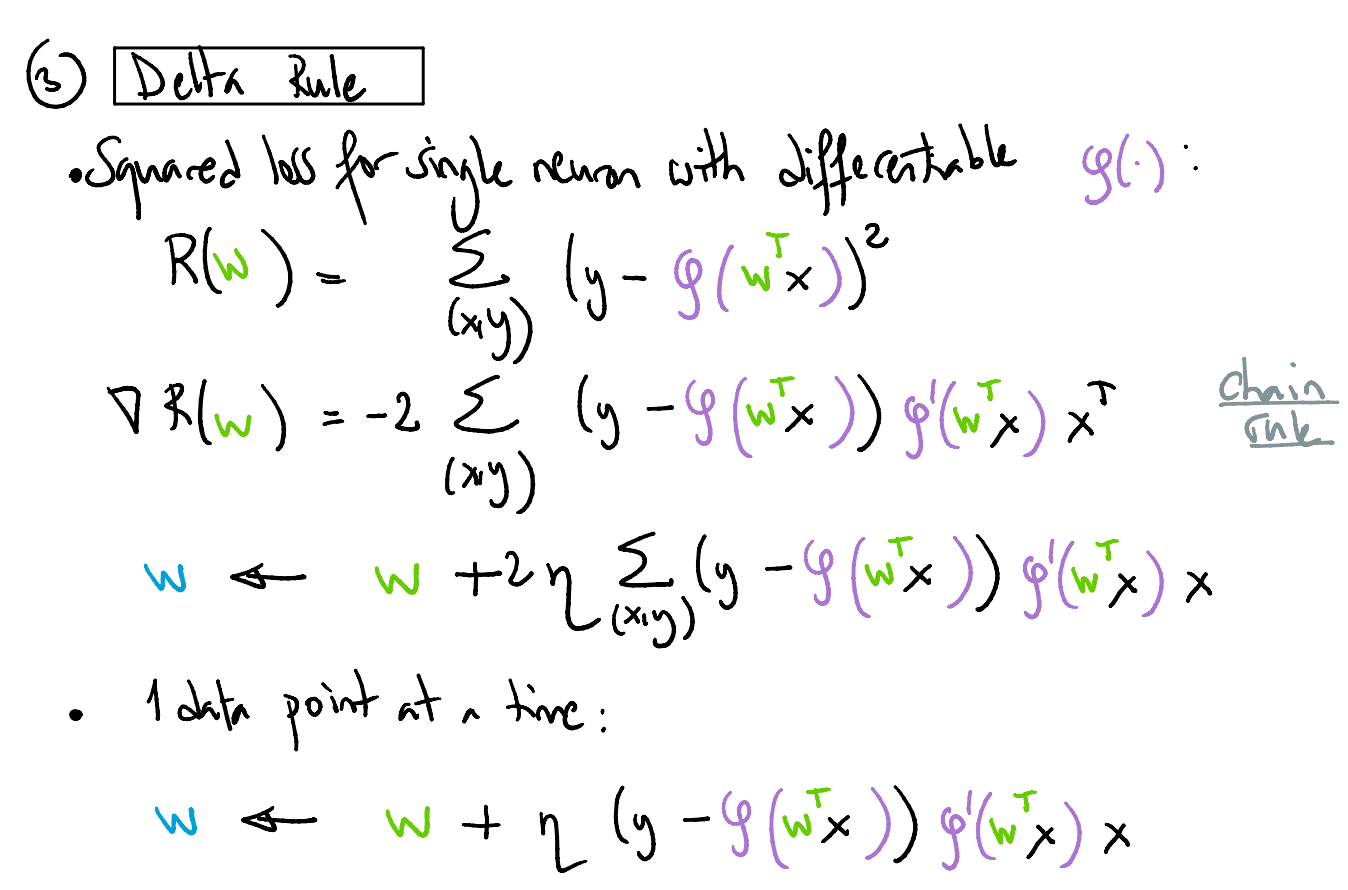 ③ Delta Rule
• Squared loss for single neuron with differentiable φ(·) :
R(w) = ∑_(x,y) (y − φ(wᵀx))²
∇R(w) = −2 ∑_(x,y) (y − φ(wᵀx)) φ'(wᵀx) xᵀ chain rule
w ← w + 2η ∑_(x,y) (y − φ(wᵀx)) φ'(wᵀx) x
• 1 data point at a time :
w ← w + η (y − φ(wᵀx)) φ'(wᵀx) x